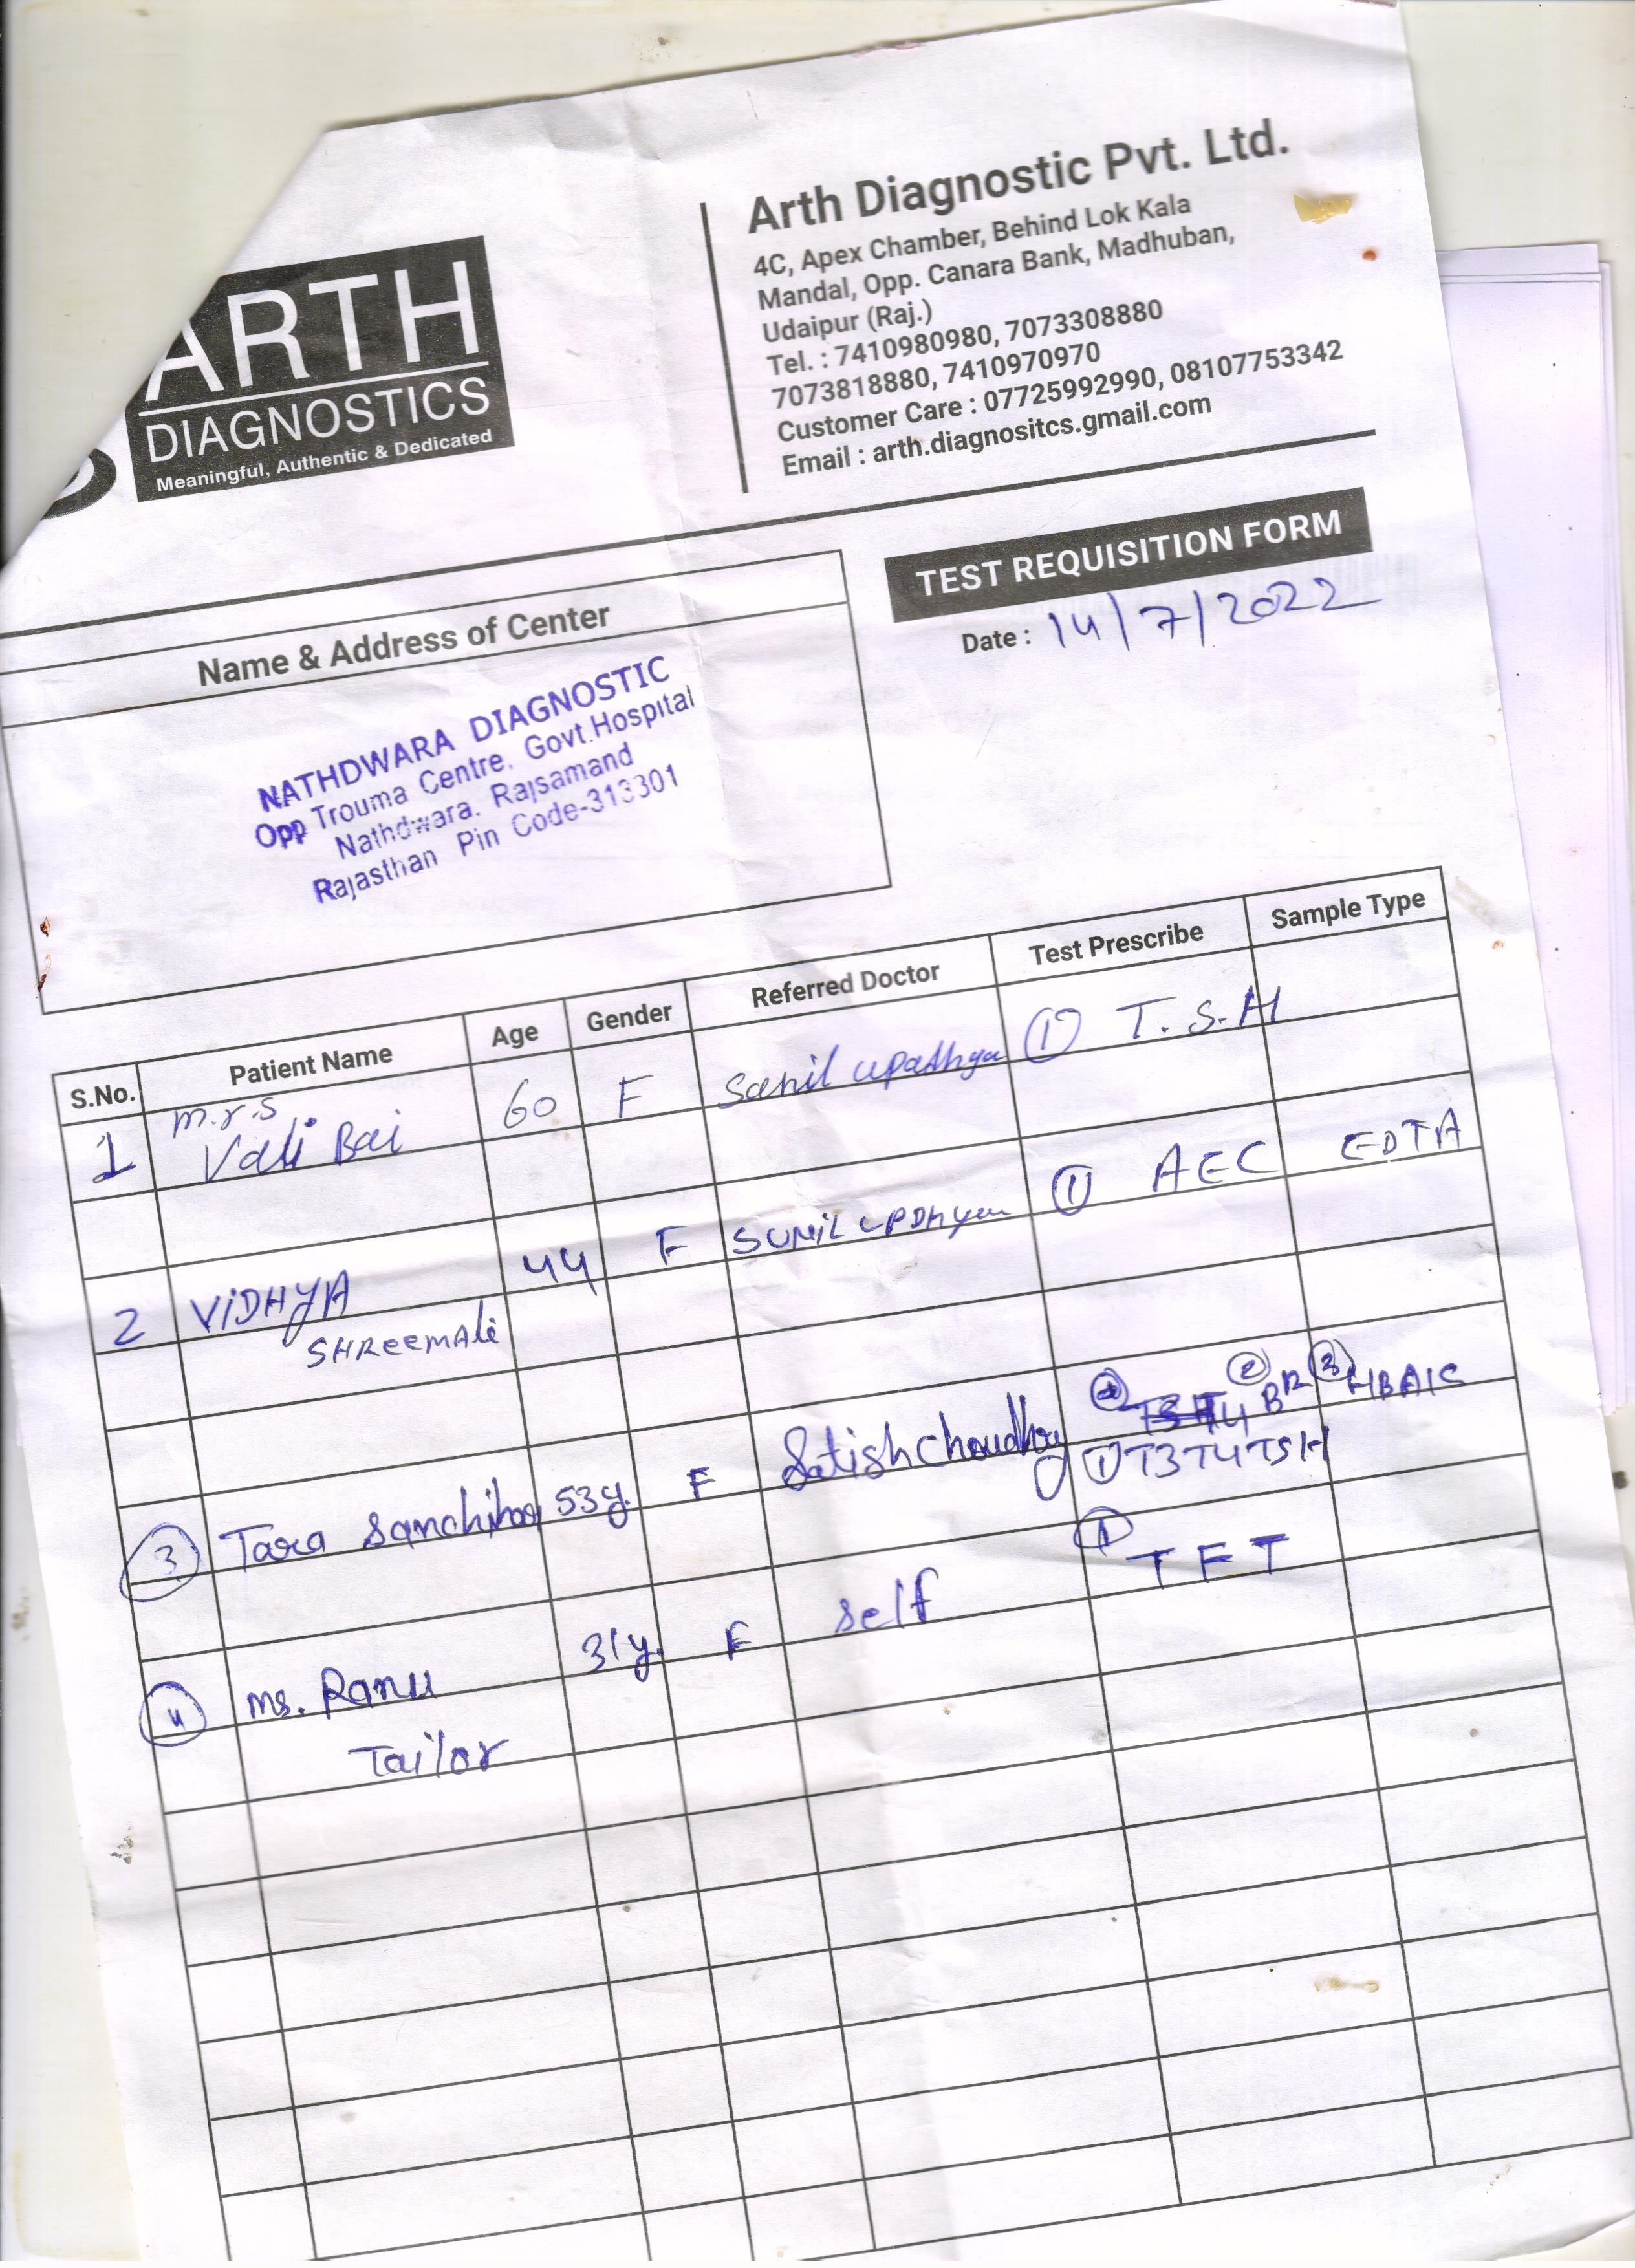 ARTH
DIAGNOSTICS
Meaningful, Authentic & Dedicated
Arth Diagnostic Pvt. Ltd.
4C, Apex Chamber, Behind Lok Kala
Mandal, Opp. Canara Bank, Madhuban,
Udaipur (Raj.)
Tel. : 7410980980, 7073308880
7073818880, 7410970970
Customer Care : 07725992990, 08107753342
Email : arth.diagnositcs.gmail.com
TEST REQUISITION FORM
Date : 14/7/2022
Name & Address of Center
NATHDWARA DIAGNOSTIC
Opp Trouma Centre. Govt.Hospital
Nathdwara. Rajsamand
Rajasthan Pin Code-313301
S.No. Patient Name Age Gender Referred Doctor Test Prescribe Sample Type
1 m.r.s Vali Bai 60 F Sanil upathya ① T.S.H
2 ViDHYA 44 F SUNiL UPDHyau ① AEC EDTA
SHREEMALi
② BR ③ HBA1C
③ Tara Sanchihar 53y. F Satish Choudhry ① T3T4TSH
④ ms. Ranu 31y. F self ① TFT
Tailor